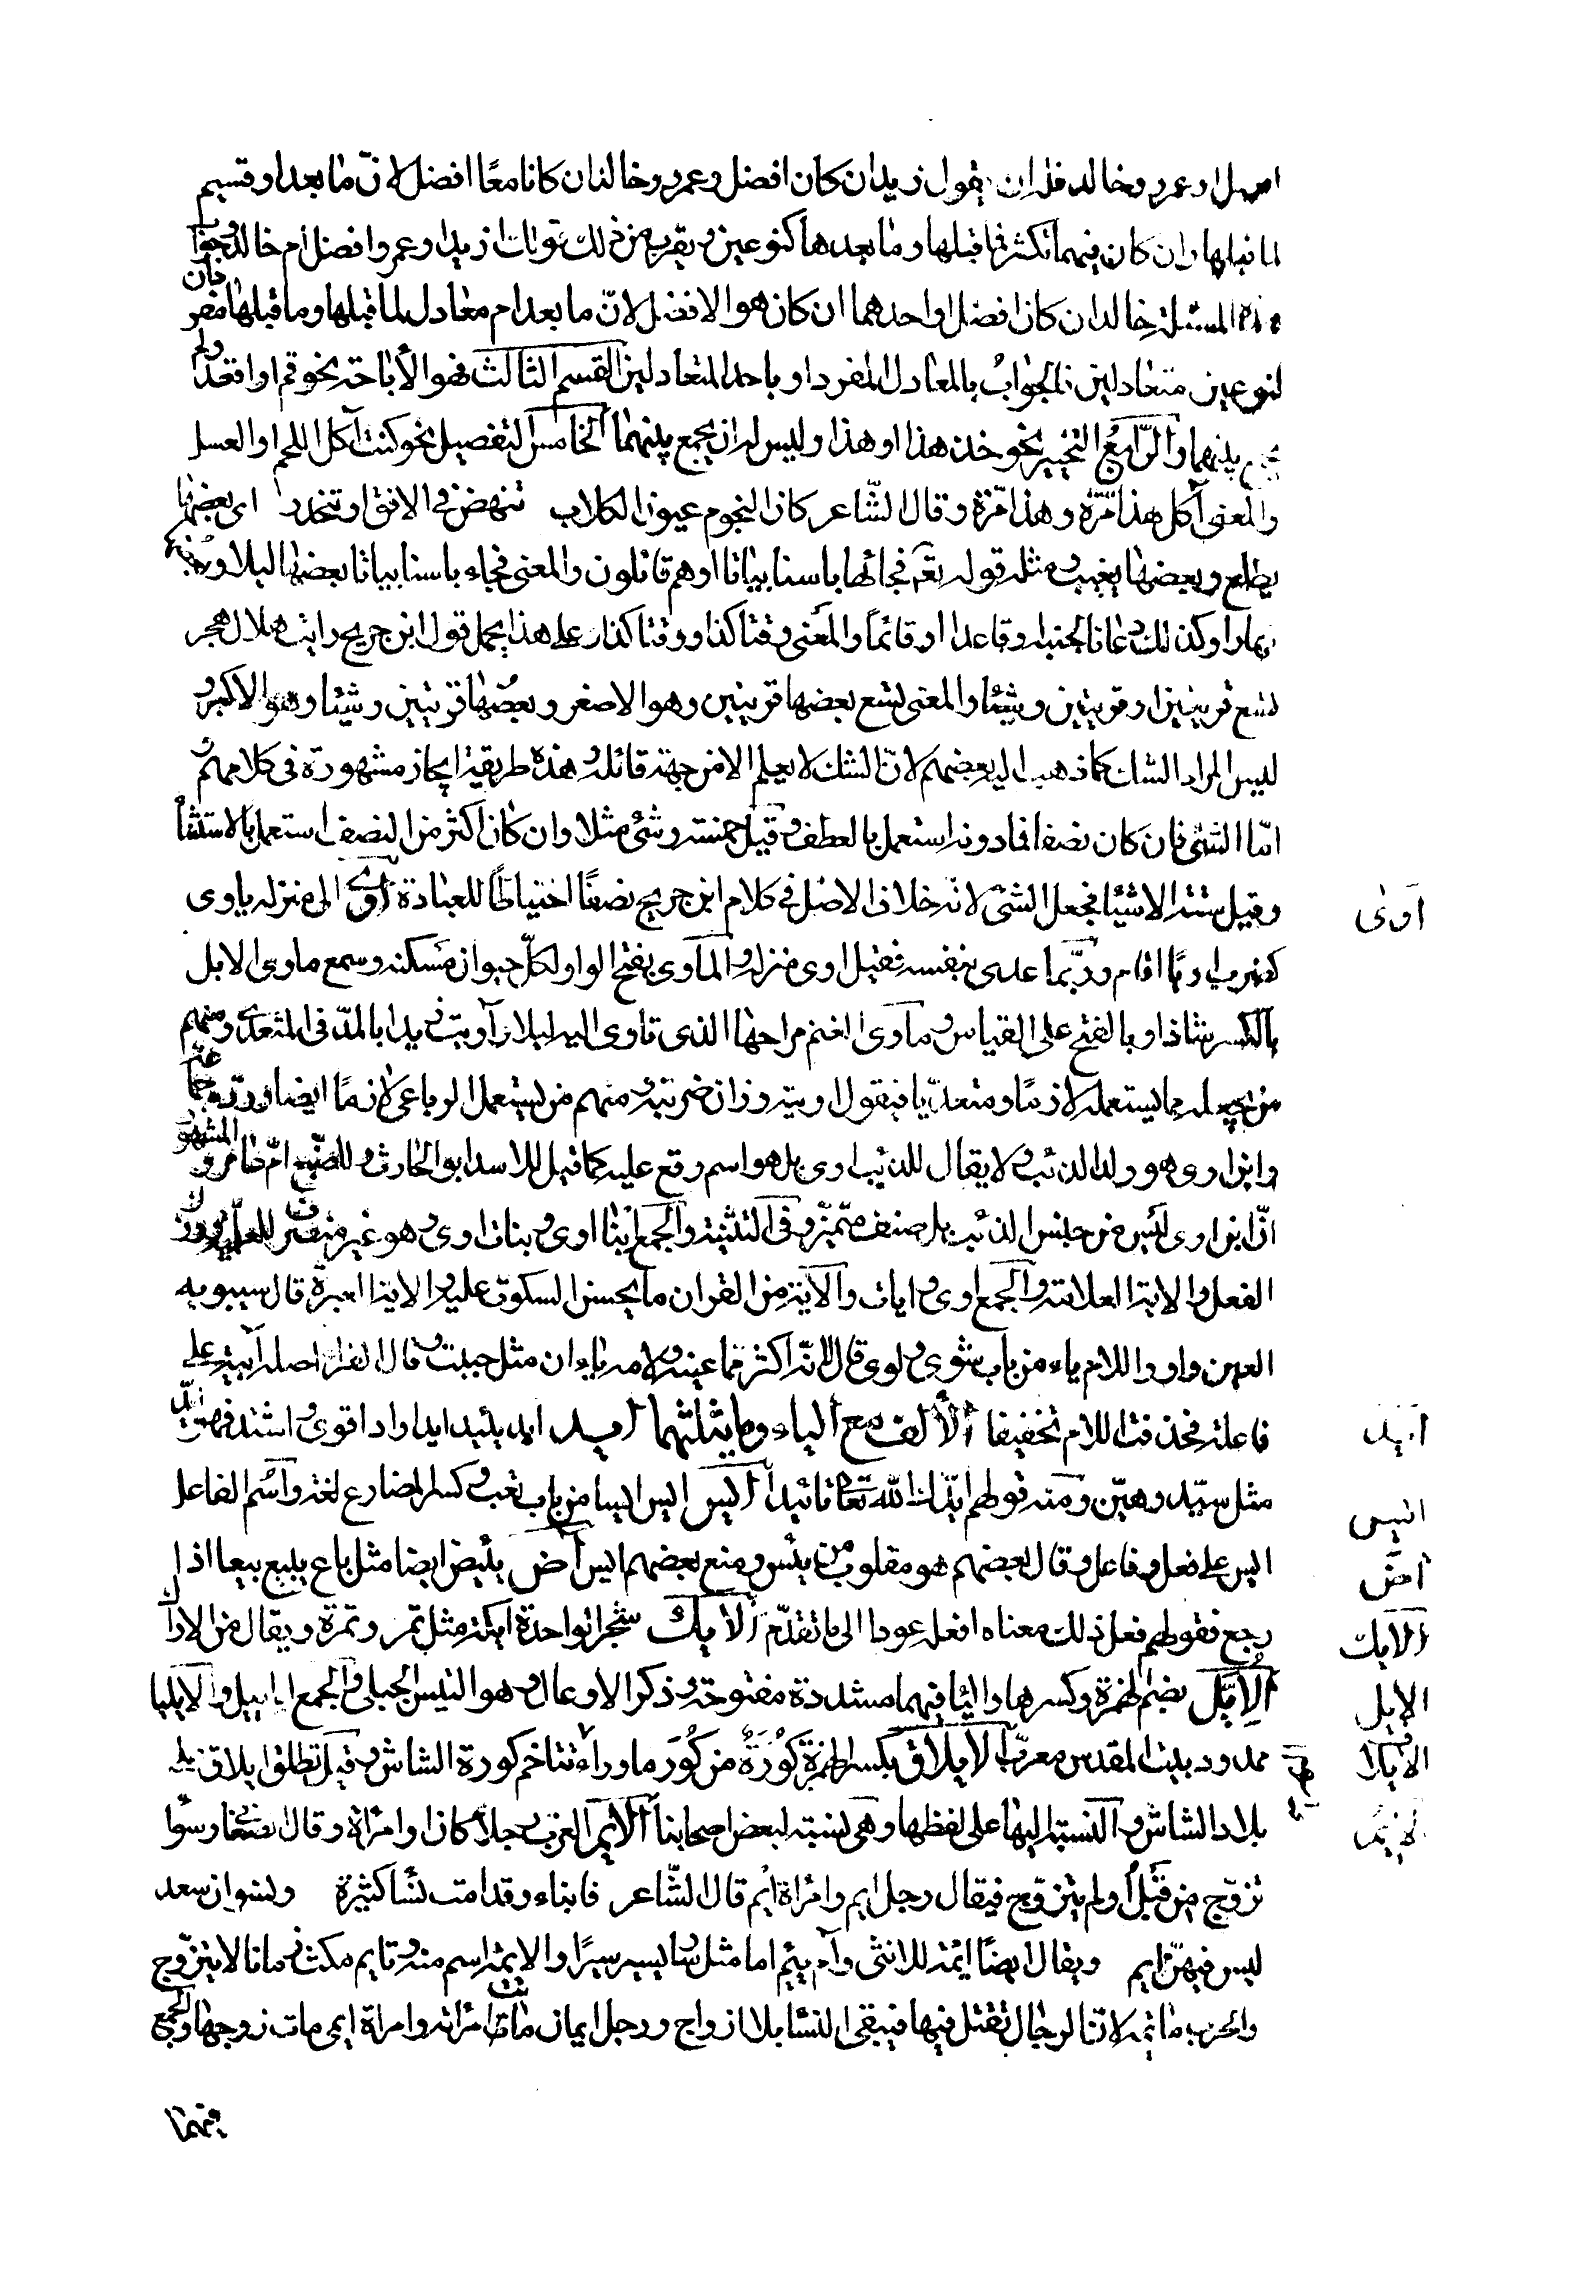 افضل او عمرو وخالد فله ان يقول زيد ان كان افضل وعمرو وخالد ان كانا معًا افضل لانّ ما بعد او قسيم
لما قبلها وان كان فيهما تكثّر فما قبلها وما بعدها كنوعين ويقرب من ذلك قولك ازيد او عمرو افضل أم خالد وجواب
هذه المسئلة خالد ان كان افضل او احدهما ان كان هو الافضل لانّ ما بعد ام معادل لما قبلها وما قبلها مفر فكان
كنوعين متعادلين فالجواب بالمعادل المفرد او باحد المتعادلين القسم الثالث فهو الأباحة نحو قم او اقعد وله
يجمع بينهما والرّابع التخيير نحو خذ هذا او هذا وليس له ان يجمع بينهما الخامس التفصيل نحو كنت آكل اللحم او العسل
والمعنى آكل هذا مرّة وهذا مرّة وقال الشّاعر كان النجوم عيون الكلاب تنهض فى الافق او تنحدر اى بعضها
يطلع وبعضها يغيب ومثله قوله تعٰ فجائها باسنا بياتا او هم قائلون والمعنى فجاء باسنا بياتا بعضها ليلا وبعضها
نهارا وكذلك دعانا لجنبه وقاعدا او قائمًا والمعنى وقتا كذا ووقتا كذا وعلى هذا يحمل قول ابن جريج رايت قلال هجر
تسع قربتين او قربتين وشيئا والمعنى تسع بعضها قربتين وهو الاصغر وبعضها قربتين وشيئا وهو الاكبر و
ليس المراد الشك كما ذهب اليه بعضهم لانّ الشك لا يعلم الا من جهة قائله وهذه طريقة ايجاز مشهورة فى كلامهم و
امّا الشئ فان كان نصفا فما دونه استعمل بالعطف وقيل خمسة وشئ مثلا وان كان اكثر من النصف استعمل بالاستثنأ
وقيل ستة الا شيئا فجعل الشئ لانّه خلاف الاصل فى كلام ابن جريج نصفًا احتياطًا للعبادة اوى الى منزله ياوى
كضرب اويًا اقام وربّما عدى بنفسه فقيل اوى منزله والمأوى بفتح الواو لكلّ حيوان مسكنه وسمع ماوى الابل
بالكسر شاذا وبالفتح على القياس ومأوى الغنم مراحها الذى تاوى اليه ليلا وآويت زيدا بالمدّ فى المتعدى ومنهم
من يجعله مما يستعمله لازمًا ومتعدّيا فيقول اويته وزان ضربته ومنهم من يستعمل الرباعى لازمًا ايضا وردّه جماعة
وابن اوى هو ولد الذئب ولا يقال للذئب اوى بل هو اسم وقع عليه كما قيل للاسد ابو الحارث وللضّبع امّ عامر والمشهور
انّ ابن اوى ليس من جنس الذئب بل صنف متميّز وفى التثنية والجمع ابنا اوى وبنات اوى وهو غير منصرف للعلمية ووزن
الفعل والاية العلامة والجمع اوى وايات والآية من القران ما يحسن السكوت عليه والاية العبرة قال سيبويه
العين واو واللام ياء من باب شوى ولوى قال لانّه اكثر مما عينه ولامه ياءان مثل حييت وقال الفراء اصله آيية على
فاعلة فحذفت اللام تخفيفا الألف مع الياء وما يثلثهما ايد ايد يئيد ايدا واداقوى واشتد فهو ايّد
مثل سيّد وهيّن ومنه قولهم ايّدك الله تعٰ تائيدا أيس ايس ايسا من باب تعب وكسر المضارع لغة واسم الفاعل
ايس على فعل وفاعل وقال بعضهم هو مقلوب من يئس ومنع بعضهم ايس آض يئيض ايضا مثل باع يبيع بيعا اذا
رجع فقولهم فعل ذلك معناه افعله عودا الى ما تقدّم الايك شجر الواحدة ايكة مثل تمر وتمرة ويقال من الاراك
الأيّل بضم الهمزة وكسرها واليا فيهما مشددة مفتوحة ذكر الاوعال وهو التيس الجبلى والجمع الاياييل والايليا
ممدود بيت المقدس معرّب الايلاق بكسر الهمزة كورة من كور ماوراء تتاخم كورة الشاش وقيل تطلق ايلاق على
بلاد الشاش والنسبة اليها على لفظها وهى نسبة لبعض اصحابنا الأيّم العزب رجلا كان او امرأة وقال الصّغانى وسوا
تزوّج من قبل او لم يتزوّج فيقال رجل ايم وامرأة أيم قال الشّاعر فابناء وقد امت نسا كثيرة ونسوان سعد
ليس فيهنّ ايم ويقال ايضًا ايّمة للانثى وآم يئيم اما مثل سار يسير سيرًا والايمة اسم منه وتايم مكث زمانا لا يتزوّج
والحرب مائمة لانّ الرجال تقتل فيها فيبقى النسا بلا ازواج ورجل ايمان ماتت امراته وامراة ايمى مات زوجها والجمع
فيهما
اوى
ايد
ايس
آض
الايك
الايل
الايلا
الايم